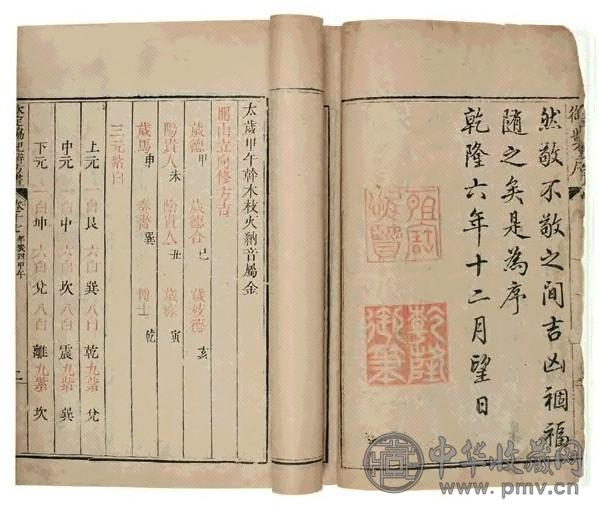 御製序
然敬不敬之間吉凶禍福
隨之矣是為序
乾隆六年十二月望日
乾隆御筆
太歲甲午幹木枝火納音屬金
開山立向修方吉
歲德甲 歲德合己 歲枝德亥
陽貴人未 陰貴人丑 歲祿寅
歲馬申 奏書巽 博士乾
三元紫白
上元 一白艮 六白巽 八白乾 九紫兌
中元 一白中 六白坎 八白震 九紫巽
下元 一白坤 六白兌 八白離 九紫坎
欽定協紀辨方書 卷十七 甲午 二
中华收藏网
www.pmv.cn